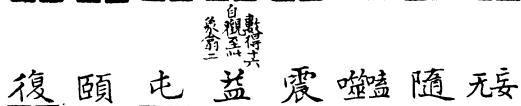 數得十六
自觀至此
象爻二
復 頤 屯 益 震 噬嗑 隨 无妄